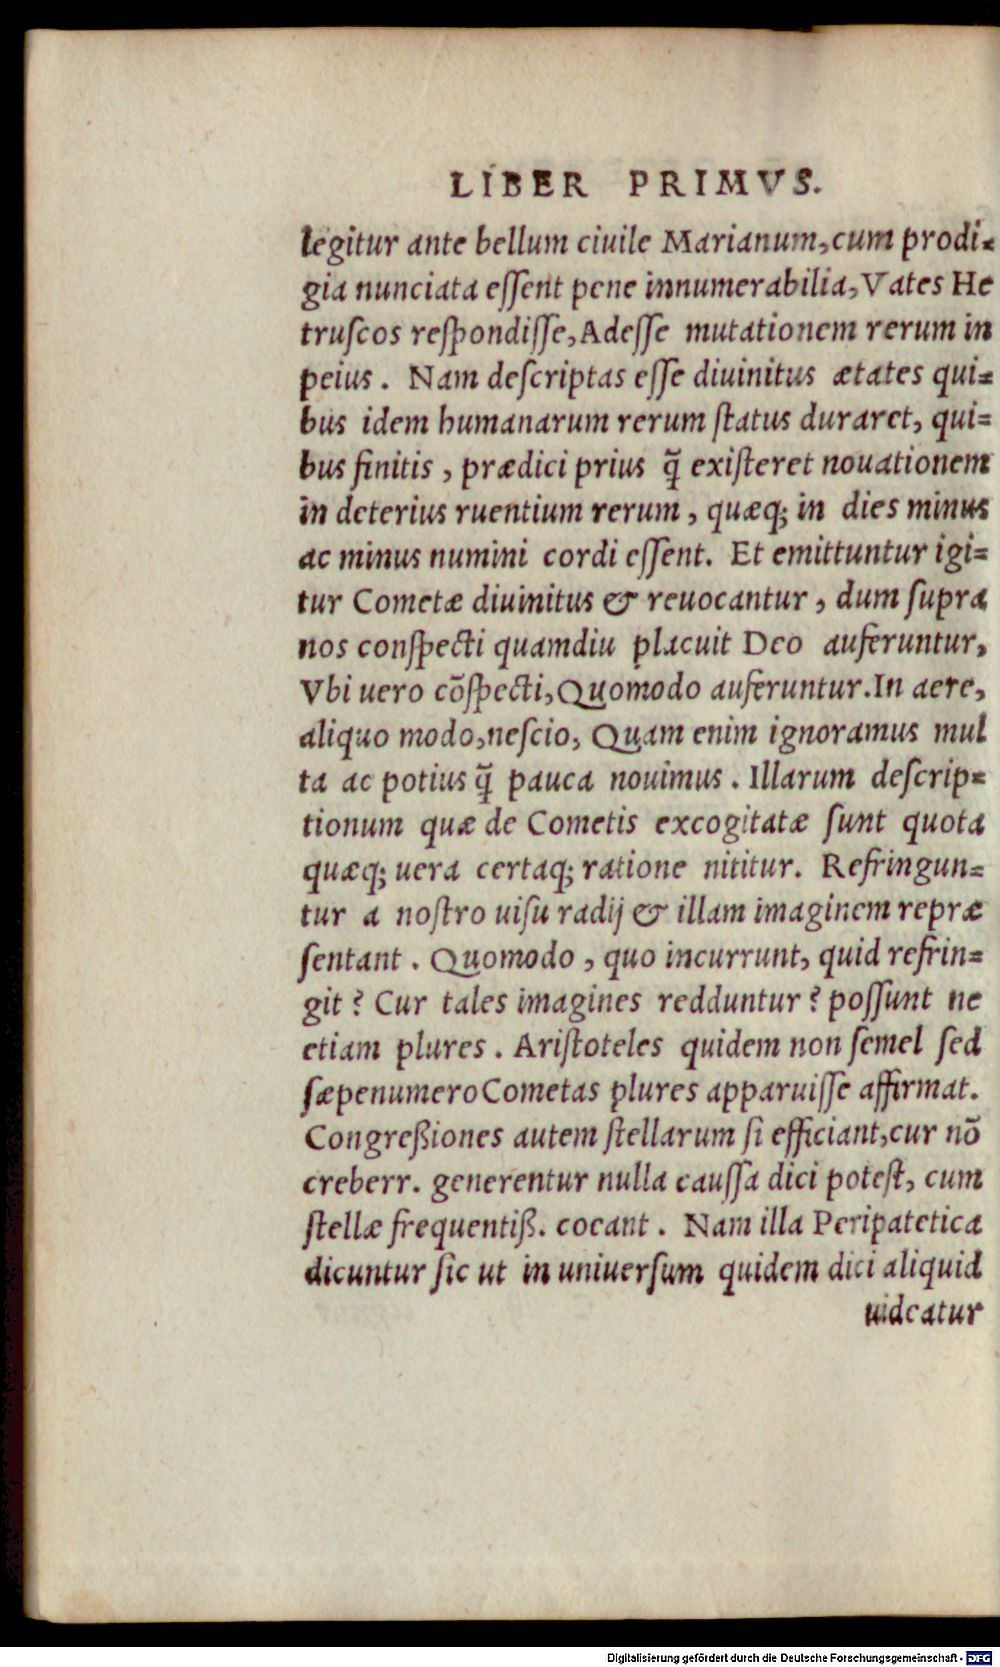 LIBER PRIMVS.
legitur ante bellum ciuile Marianum, cum prodi-
gia nunciata eſſent pene innumerabilia, Vates He
truſcos reſpondiſſe, Adeſſe mutationem rerum in
peius. Nam deſcriptas eſſe diuinitus ætates qui-
bus idem humanarum rerum ſtatus duraret, qui-
bus finitis, prædici prius q̃ exiſteret nouationem
in deterius ruentium rerum, quæq; in dies minus
ac minus numini cordi eſſent. Et emittuntur igi-
tur Cometæ diuinitus & reuocantur, dum ſupra
nos conſpecti quamdiu placuit Deo auferuntur,
Vbi uero cõſpecti, Quomodo auferuntur. In aere,
aliquo modo, neſcio, Quam enim ignoramus mul
ta ac potius q̃ pauca nouimus. Illarum deſcrip-
tionum quæ de Cometis excogitatæ ſunt quota
quæq; uera certaq; ratione nititur. Refringun-
tur a noſtro uiſu radij & illam imaginem repræ
ſentant. Quomodo, quo incurrunt, quid refrin-
git? Cur tales imagines redduntur? poſſunt ne
etiam plures. Ariſtoteles quidem non ſemel ſed
ſæpenumero Cometas plures apparuiſſe affirmat.
Congreßiones autem ſtellarum ſi efficiant, cur nõ
creberr. generentur nulla cauſſa dici poteſt, cum
ſtellæ frequentiß. coeant. Nam illa Peripatetica
dicuntur ſic ut in uniuerſum quidem dici aliquid
uideatur
Digitalisierung gefördert durch die Deutsche Forschungsgemeinschaft - DFG